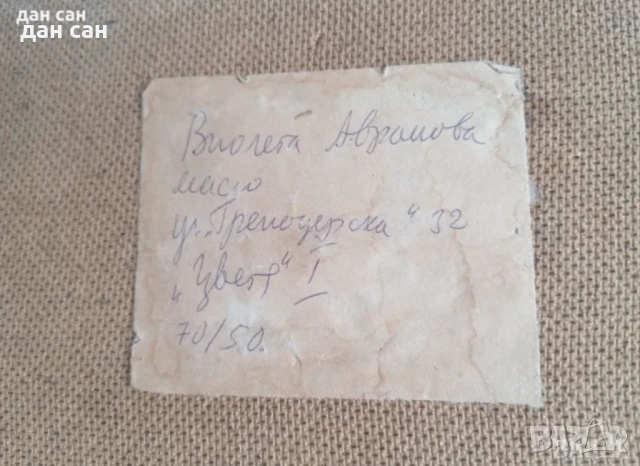 дан сан
дан сан
Виолета Аврамова
масло
ул. „Гренадирска“ 32
„Цветя“ I
70/50.
BAZAR